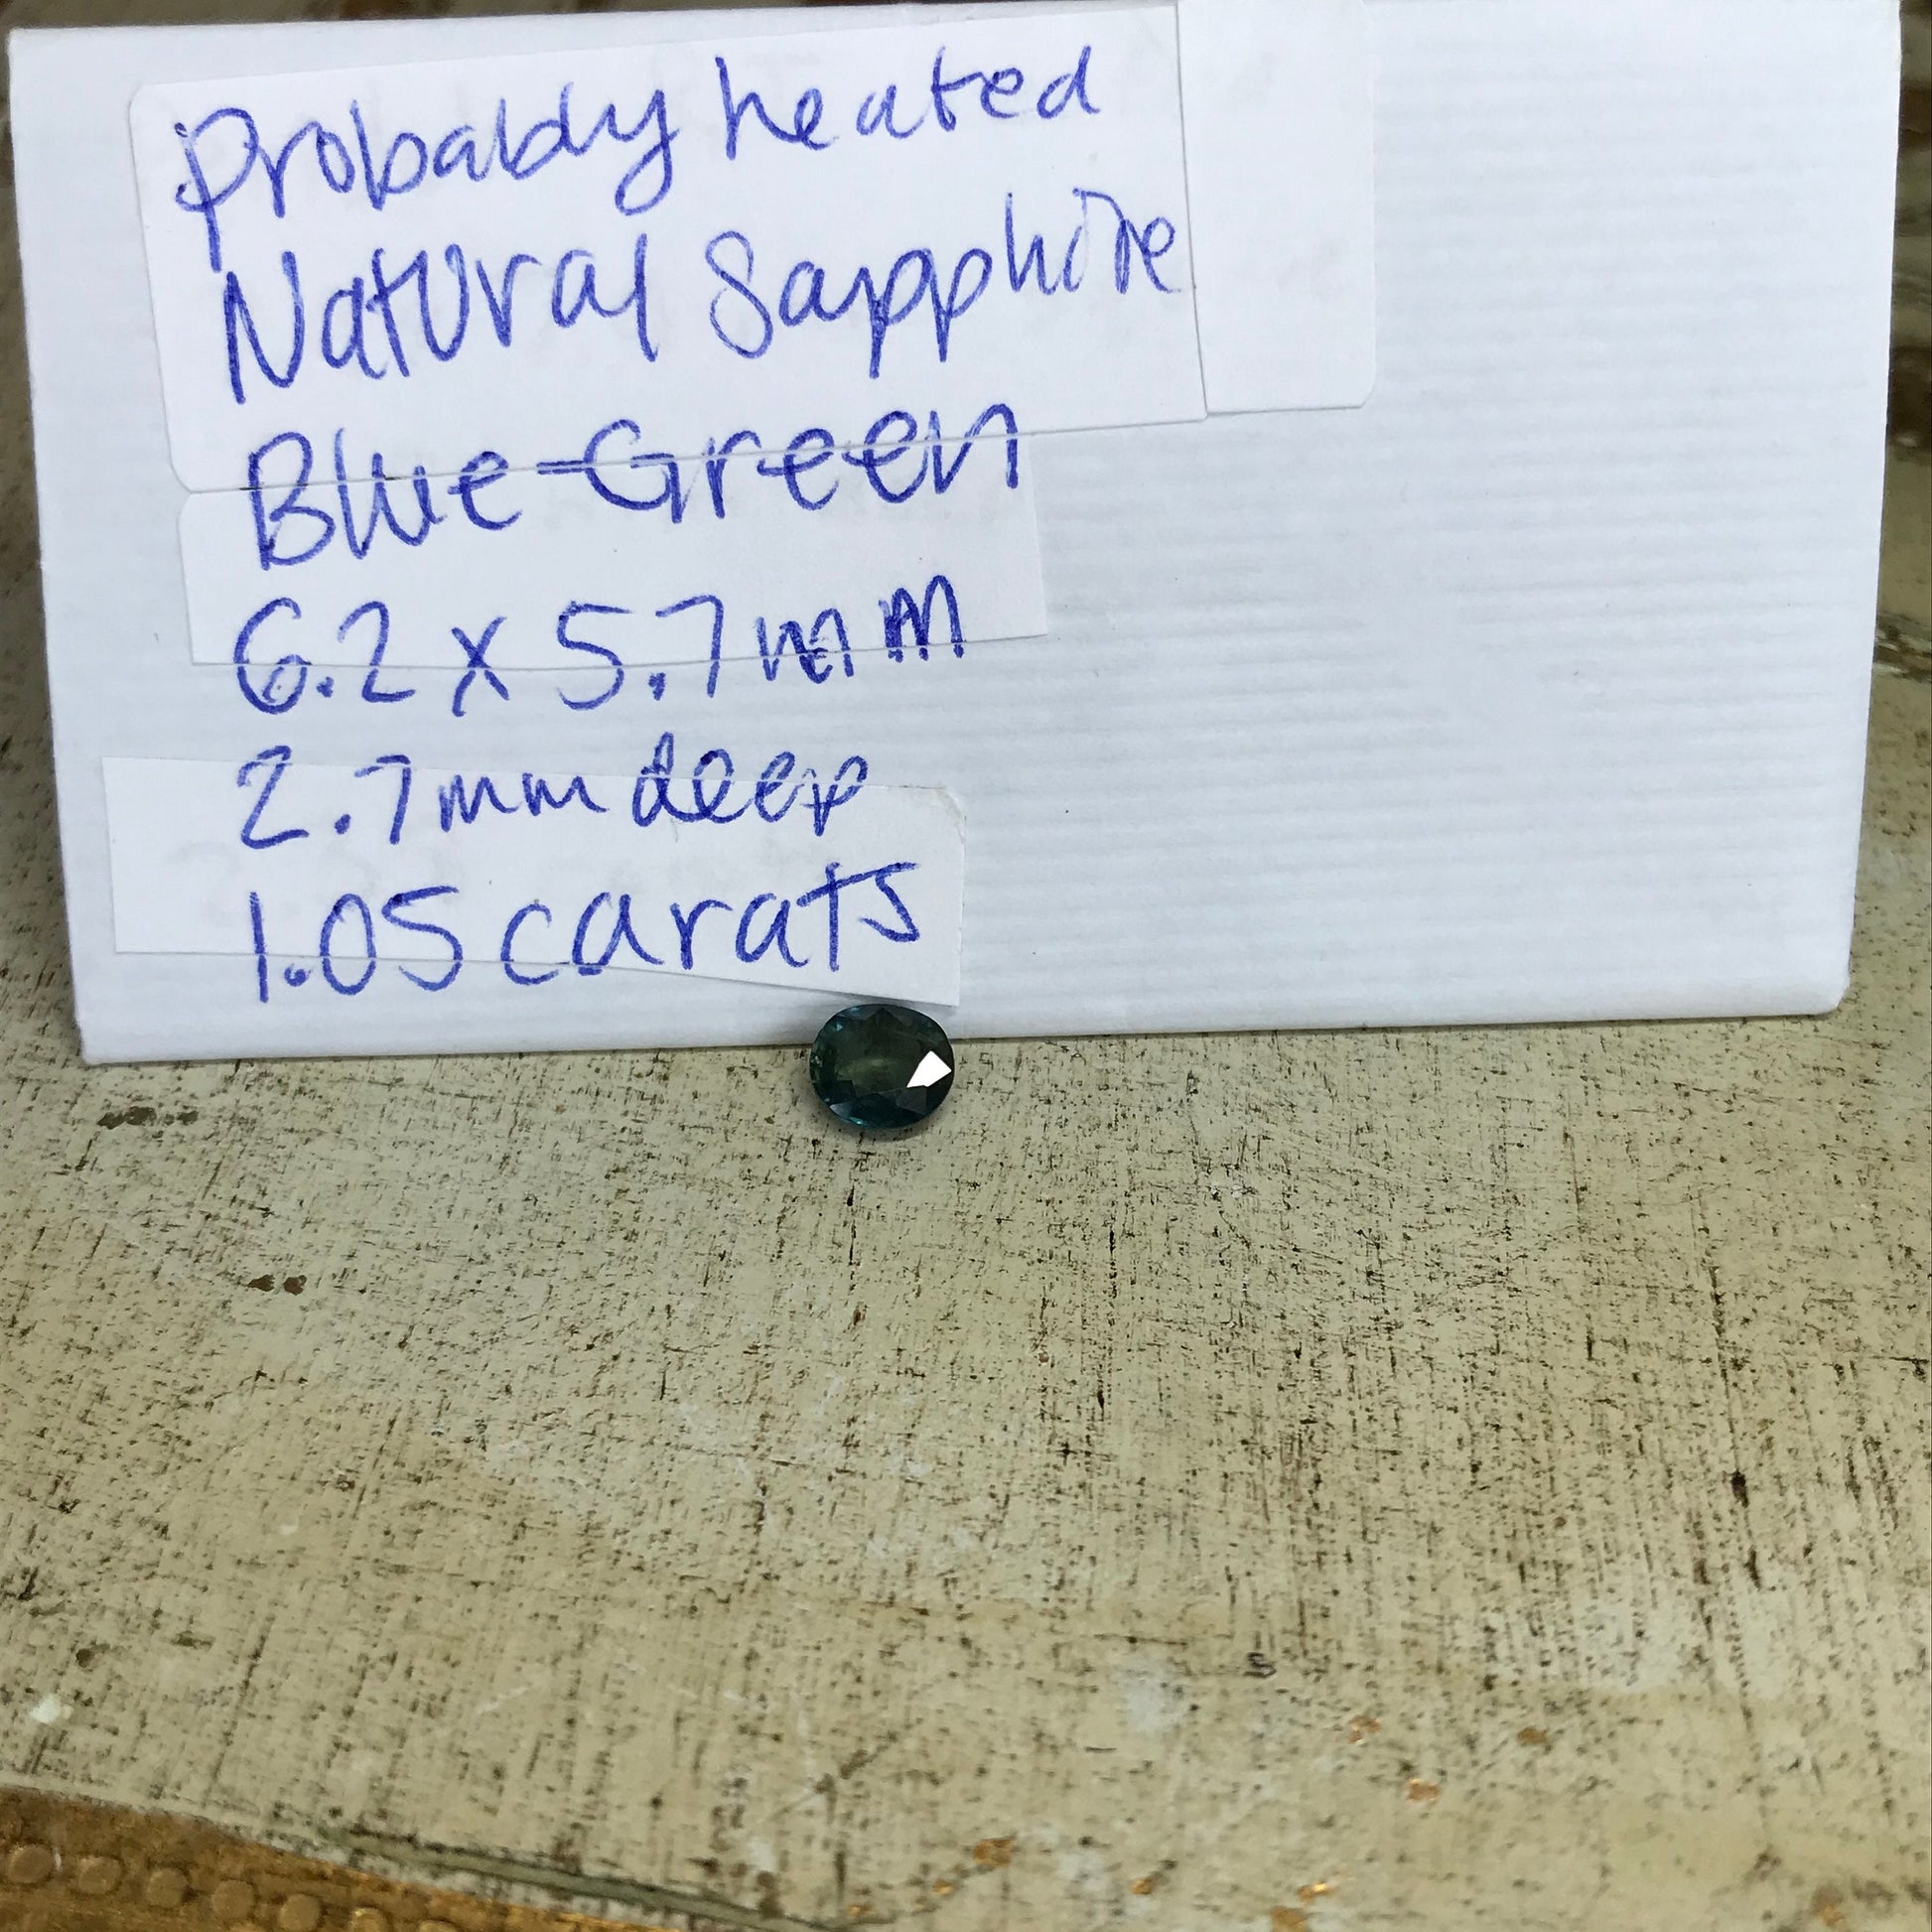 Probably heated
Natural Sapphire
Blue-Green
6.2 x 5.7mm
2.7mm deep
1.05 carats